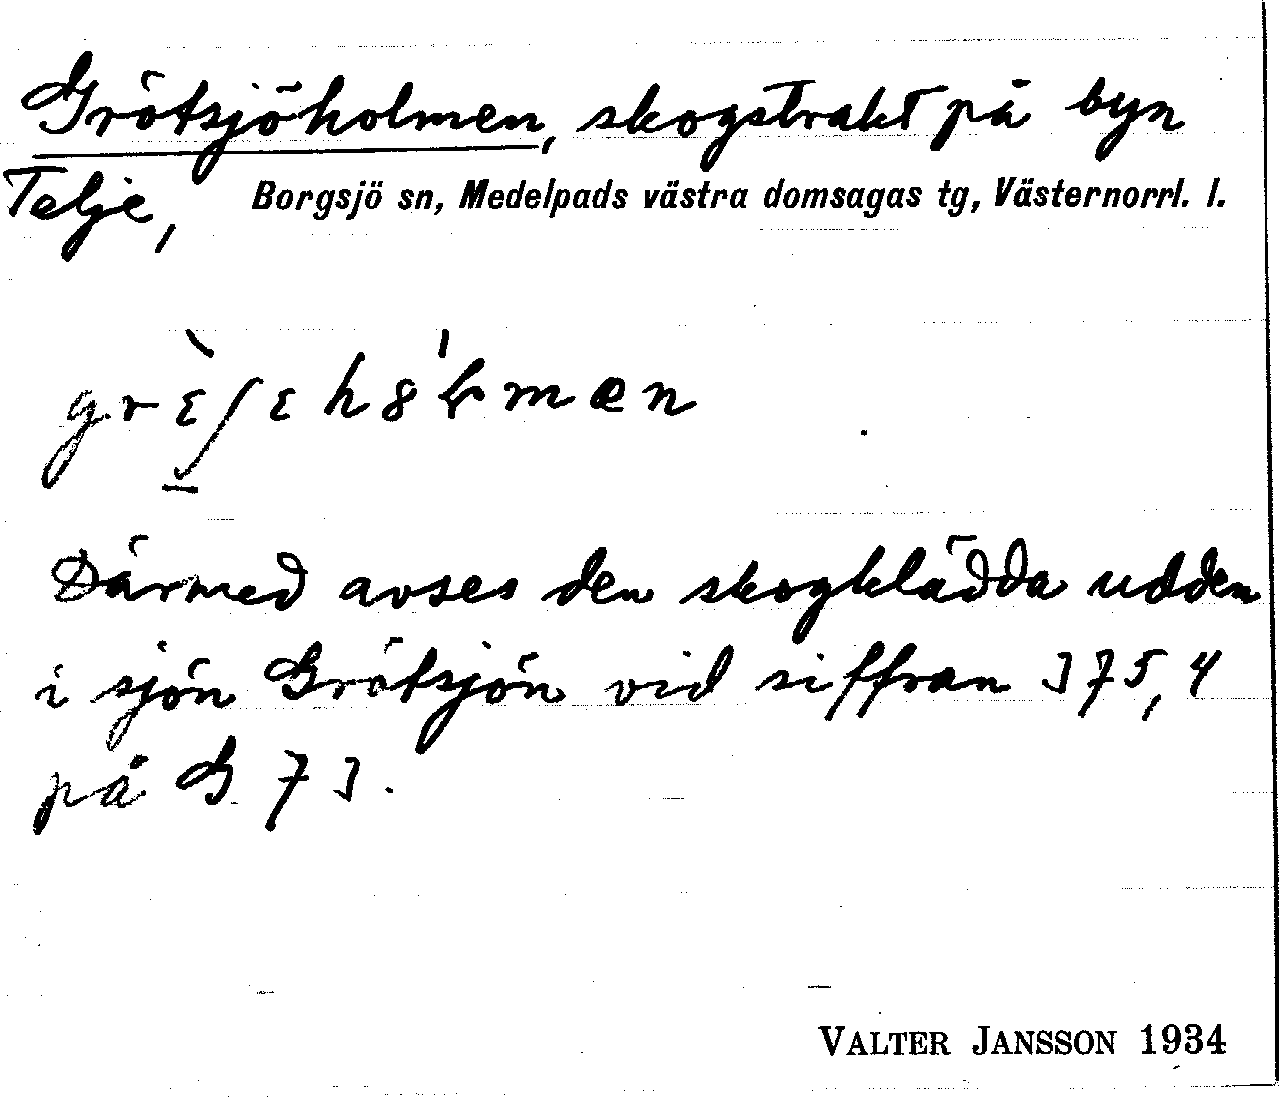 Grötsjöholmen, skogstrakt på byn
Telje, Borgsjö sn, Medelpads västra domsagas tg, Västernorrl. l.
Därmed avses den skogklädda udden
i sjön Grötsjön vid siffran 375,4
på G 73.
VALTER JANSSON 1934